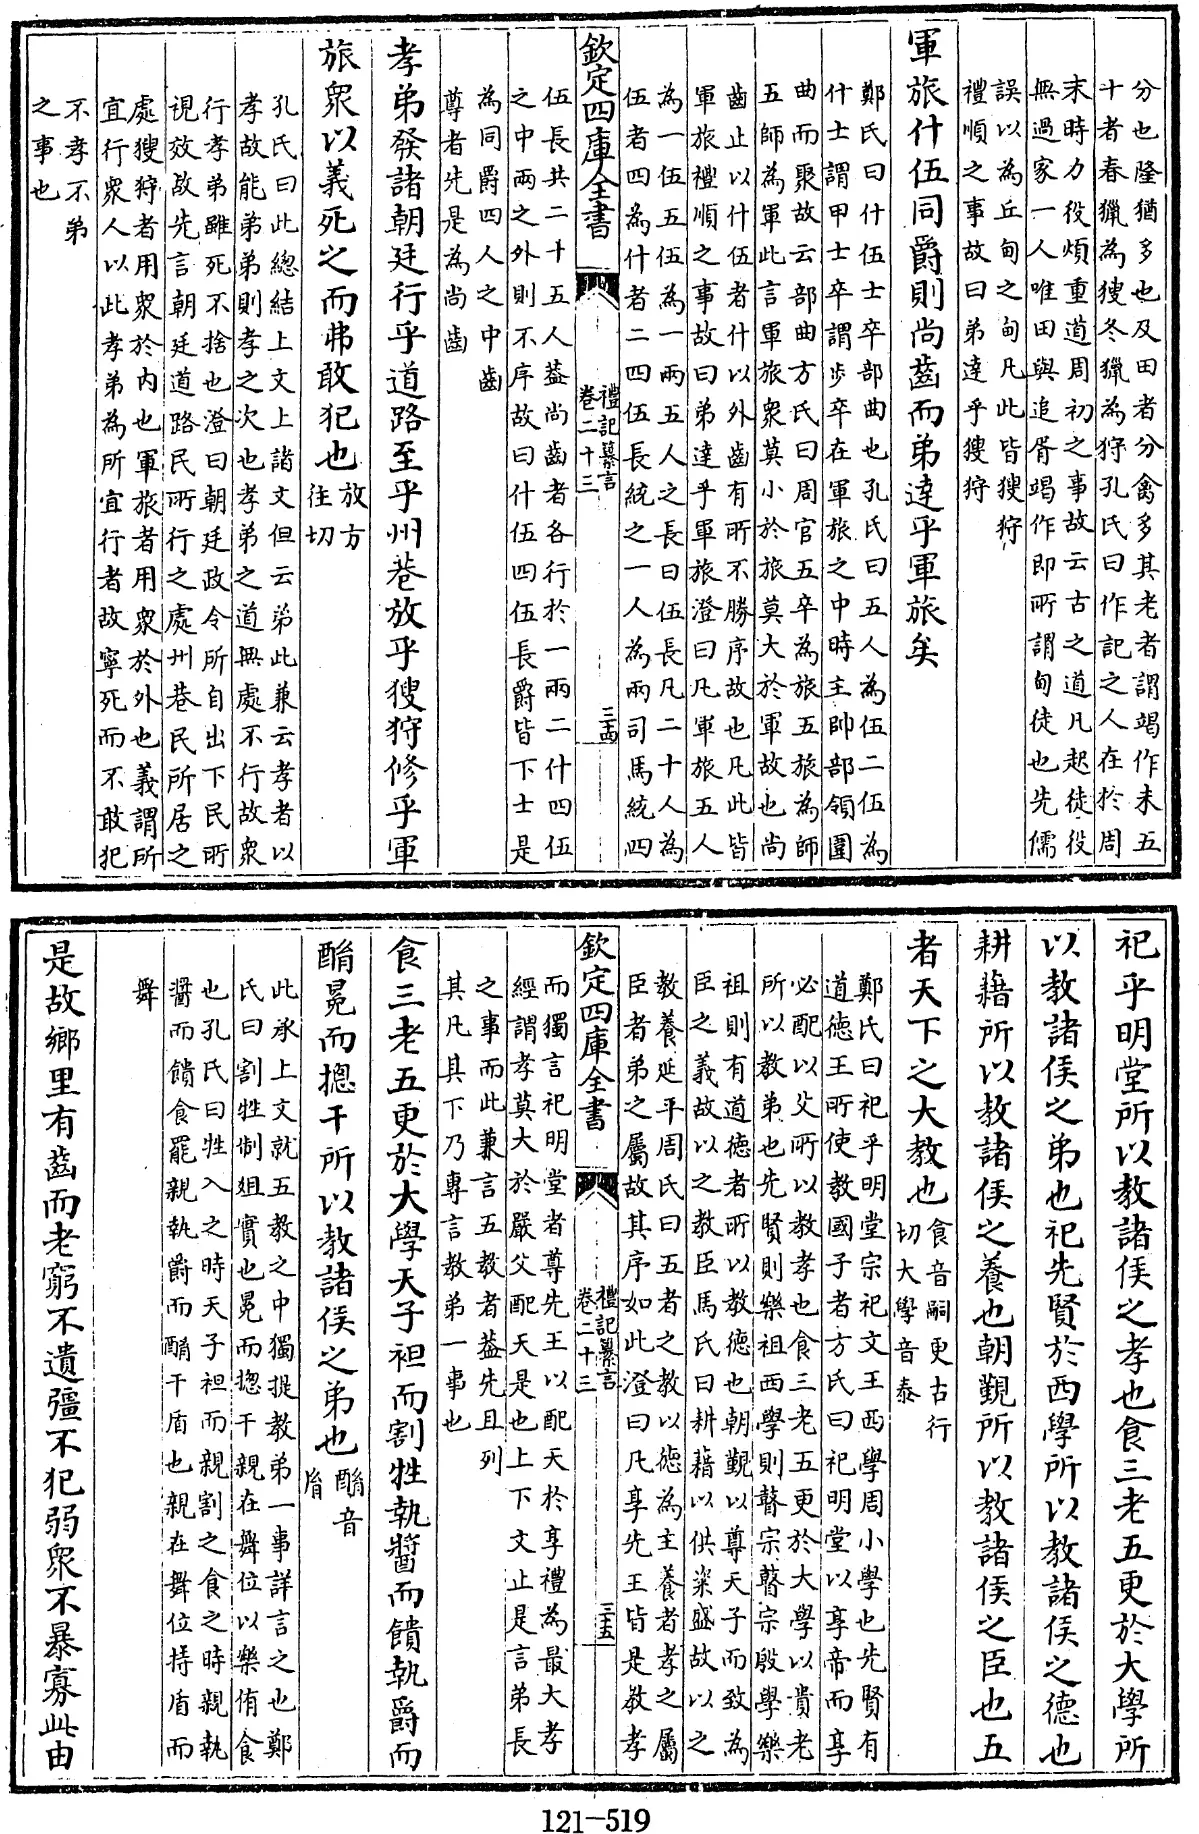 分也隆猶多也及田者分禽多其老者謂竭作未五
十者春獵為獀冬獵為狩孔氏曰作記之人在於周
末時力役煩重道周初之事故云古之道凡起徒役
無過家一人唯田與追胥竭作即所謂甸徒也先儒
誤以為丘甸之甸凡此皆獀狩
禮順之事故曰弟達乎獀狩
軍旅什伍同爵則尚齒而弟達乎軍旅矣
鄭氏曰什伍士卒部曲也孔氏曰五人為伍二伍為
什士謂甲士卒謂步卒在軍旅之中時主帥部領團
曲而聚故云部曲方氏曰周官五卒為旅五旅為師
五師為軍此言軍旅衆莫小於旅莫大於軍故也尚
齒止以什伍者什以外齒有所不勝序故也凡此皆
軍旅禮順之事故曰弟達乎軍旅澄曰凡軍旅五人
為一伍五伍為一兩五人之長曰伍長凡二十人為
伍者四為什者二四伍長統之一人為兩司馬統四
欽定四庫全書
禮記纂言
卷二十三
三四
伍長共二十五人葢尚齒者各行於一兩二什四伍
之中兩之外則不序故曰什伍四伍長爵皆下士是
為同爵四人之中齒
尊者先是為尚齒
孝弟發諸朝廷行乎道路至乎州巷放乎獀狩修乎軍
旅衆以義死之而弗敢犯也
放方
往切
孔氏曰此總結上文上諸文但云弟此兼云孝者以
孝故能弟弟則孝之次也孝弟之道無處不行故衆
行孝弟雖死不捨也澄曰朝廷政令所自出下民所
視效故先言朝廷道路民所行之處州巷民所居之
處獀狩者用衆於內也軍旅者用衆於外也義謂所
宜行衆人以此孝弟為所宜行者故寧死而不敢犯
不孝不弟
之事也
祀乎明堂所以教諸侯之孝也食三老五更於大學所
以教諸侯之弟也祀先賢於西學所以教諸侯之德也
耕藉所以教諸侯之養也朝覲所以教諸侯之臣也五
者天下之大教也
食音嗣更古行
切大學音泰
鄭氏曰祀乎明堂宗祀文王西學周小學也先賢有
道德王所使教國子者方氏曰祀明堂以享帝而享
必配以父所以教孝也食三老五更於大學以貴老
所以教弟也先賢則樂祖西學則瞽宗瞽宗殷學樂
祖則有道德者所以教德也朝覲以尊天子而致為
臣之義故以之教臣馬氏曰耕藉以供粢盛故以之
教養延平周氏曰五者之教以德為主養者孝之屬
臣者弟之屬故其序如此澄曰凡享先王皆是教孝
欽定四庫全書
禮記纂言
卷二十三
三五
而獨言祀明堂者尊先王以配天於享禮為最大孝
經謂孝莫大於嚴父配天是也上下文止是言弟長
之事而此兼言五教者葢先且列
其凡其下乃專言教弟一事也
食三老五更於大學天子袒而割牲執醬而饋執爵而
酳冕而揔干所以教諸侯之弟也
酳音
胤
此承上文就五教之中獨提教弟一事詳言之也鄭
氏曰割牲制俎實也冕而揔干親在舞位以樂侑食
也孔氏曰牲入之時天子袒而親割之食之時親執
醬而饋食罷親執爵而酳干盾也親在舞位持盾而
舞
是故鄉里有齒而老窮不遺彊不犯弱衆不暴寡此由
121-519